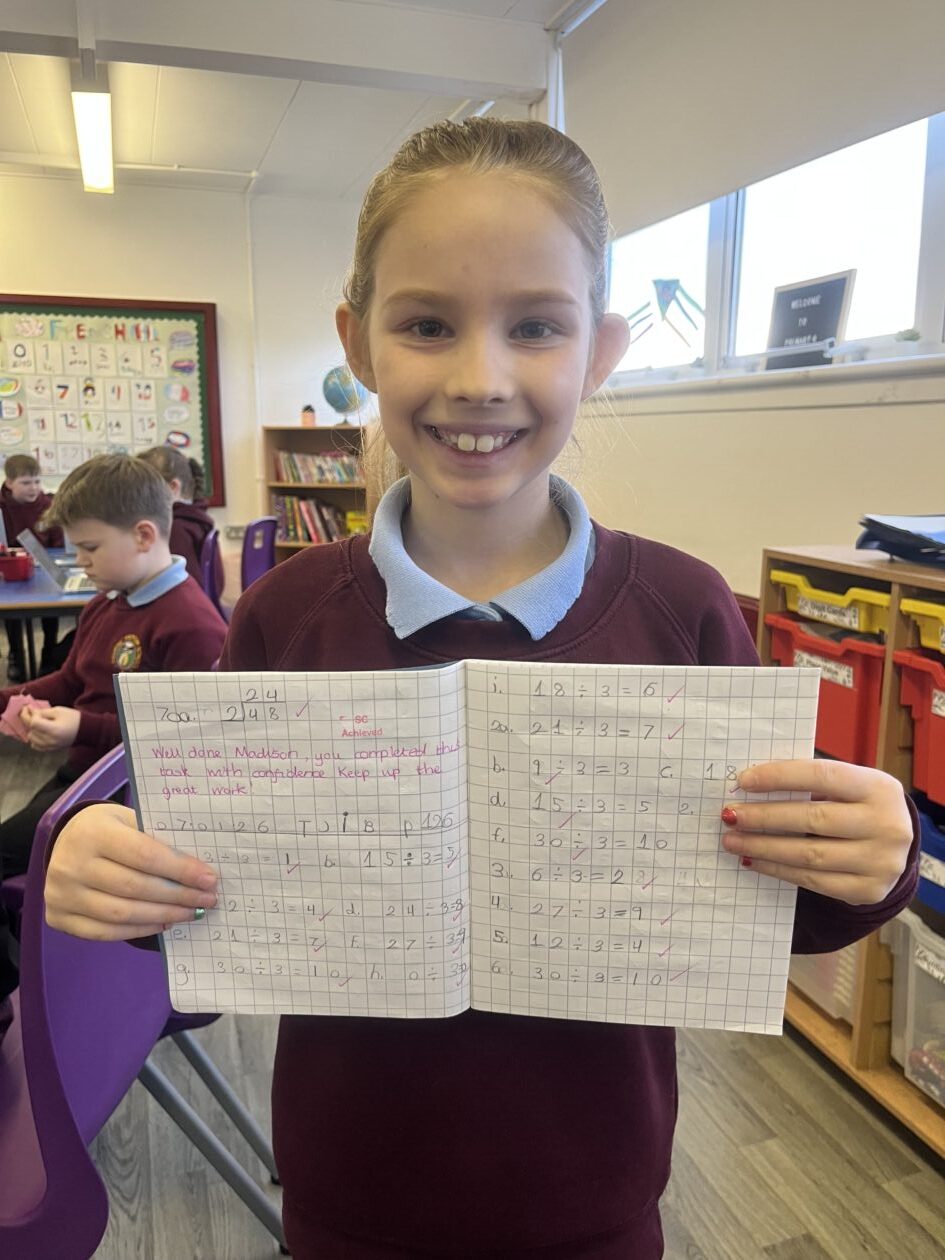 FRENCH
0 1 2 3 4 5
6 7
WELCOME
TO
PRIMARY 4
24
70a. 2 48 ✓
SC
Achieved
Well done Madison, you completed this
task with confidence Keep up the
great work!
07.01.26 TJ1B p126
3 ÷ 3 = 1 b. 15 ÷ 3 = 5
2 ÷ 3 = 4 d. 24 ÷ 3 = 8
e. 21 ÷ 3 = 7 f. 27 ÷ 3 = 9
g. 30 ÷ 3 = 10 h. 0 ÷ 3
i. 18 ÷ 3 = 6
2a. 21 ÷ 3 = 7
b. 9 ÷ 3 = 3 c. 18
d. 15 ÷ 3 = 5 2.
f. 30 ÷ 3 = 10
3. 6 ÷ 3 = 2
4. 27 ÷ 3 = 9
5. 12 ÷ 3 = 4
6. 30 ÷ 3 = 10